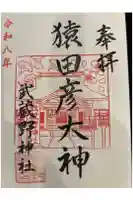 奉拝
猿田彦大神
武蔵野神社
令和八年